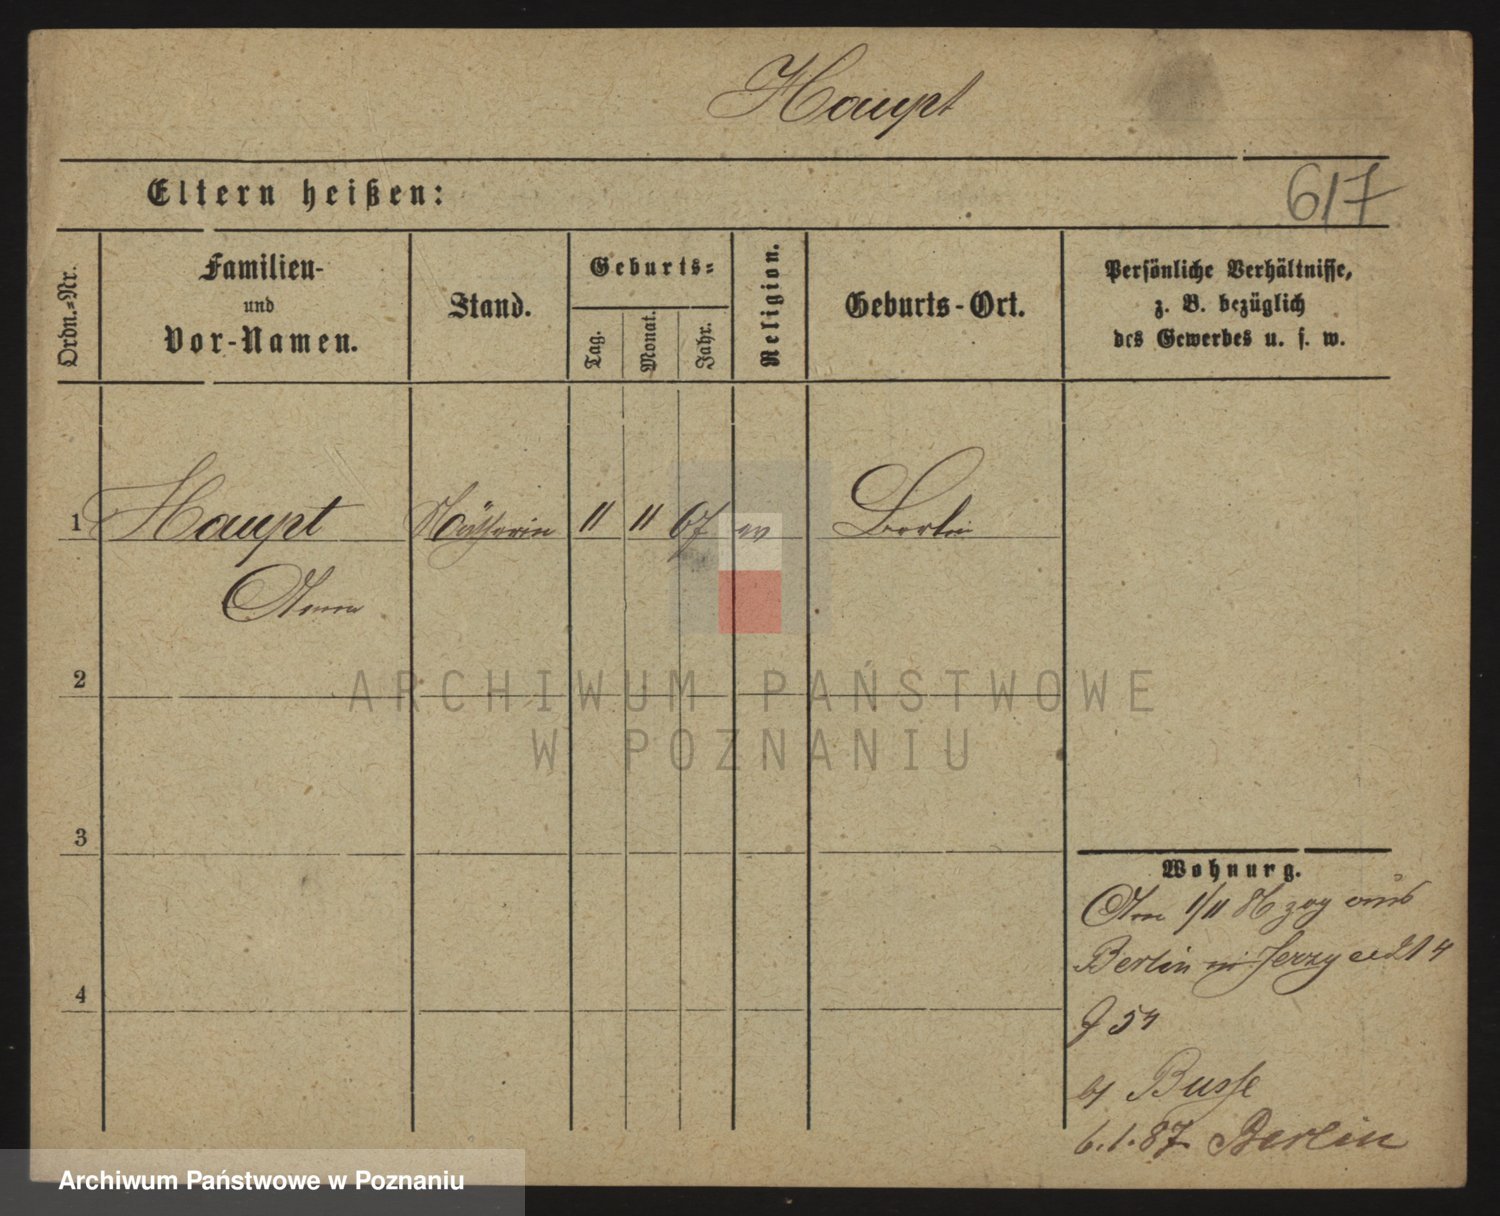 Haupt
Eltern heißen:
617
Ordn.-Nr.
Familien-
und
Vor-Namen.
Stand.
Geburts-
Tag.
Monat.
Jahr.
Religion.
Geburts-Ort.
Persönliche Verhältnisse,
z. B. bezüglich
des Gewerbes u. s. w.
1 Haupt Näherin 11 11 67 ev Berlin
Anna
2
ARCHIWUM PAŃSTWOWE
W POZNANIU
3
Wohnung.
Am 1/11 86 zog aus
Berlin in Jerzyce 214
J 54
bj Busse
4
6.1.87 Berlin
Archiwum Państwowe w Poznaniu